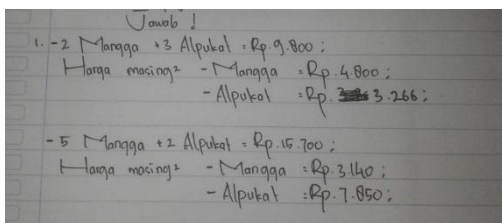 Jawab !
1. - 2 Mangga + 3 Alpukat = Rp. 9.800 ;
Harga masing² - Mangga = Rp. 4.800 ;
- Alpukat = Rp. 3.266 ;
- 5 Mangga + 2 Alpukat = Rp. 15.700 ;
Harga masing² - Mangga = Rp. 3.140 ;
- Alpukat = Rp. 7.850 ;